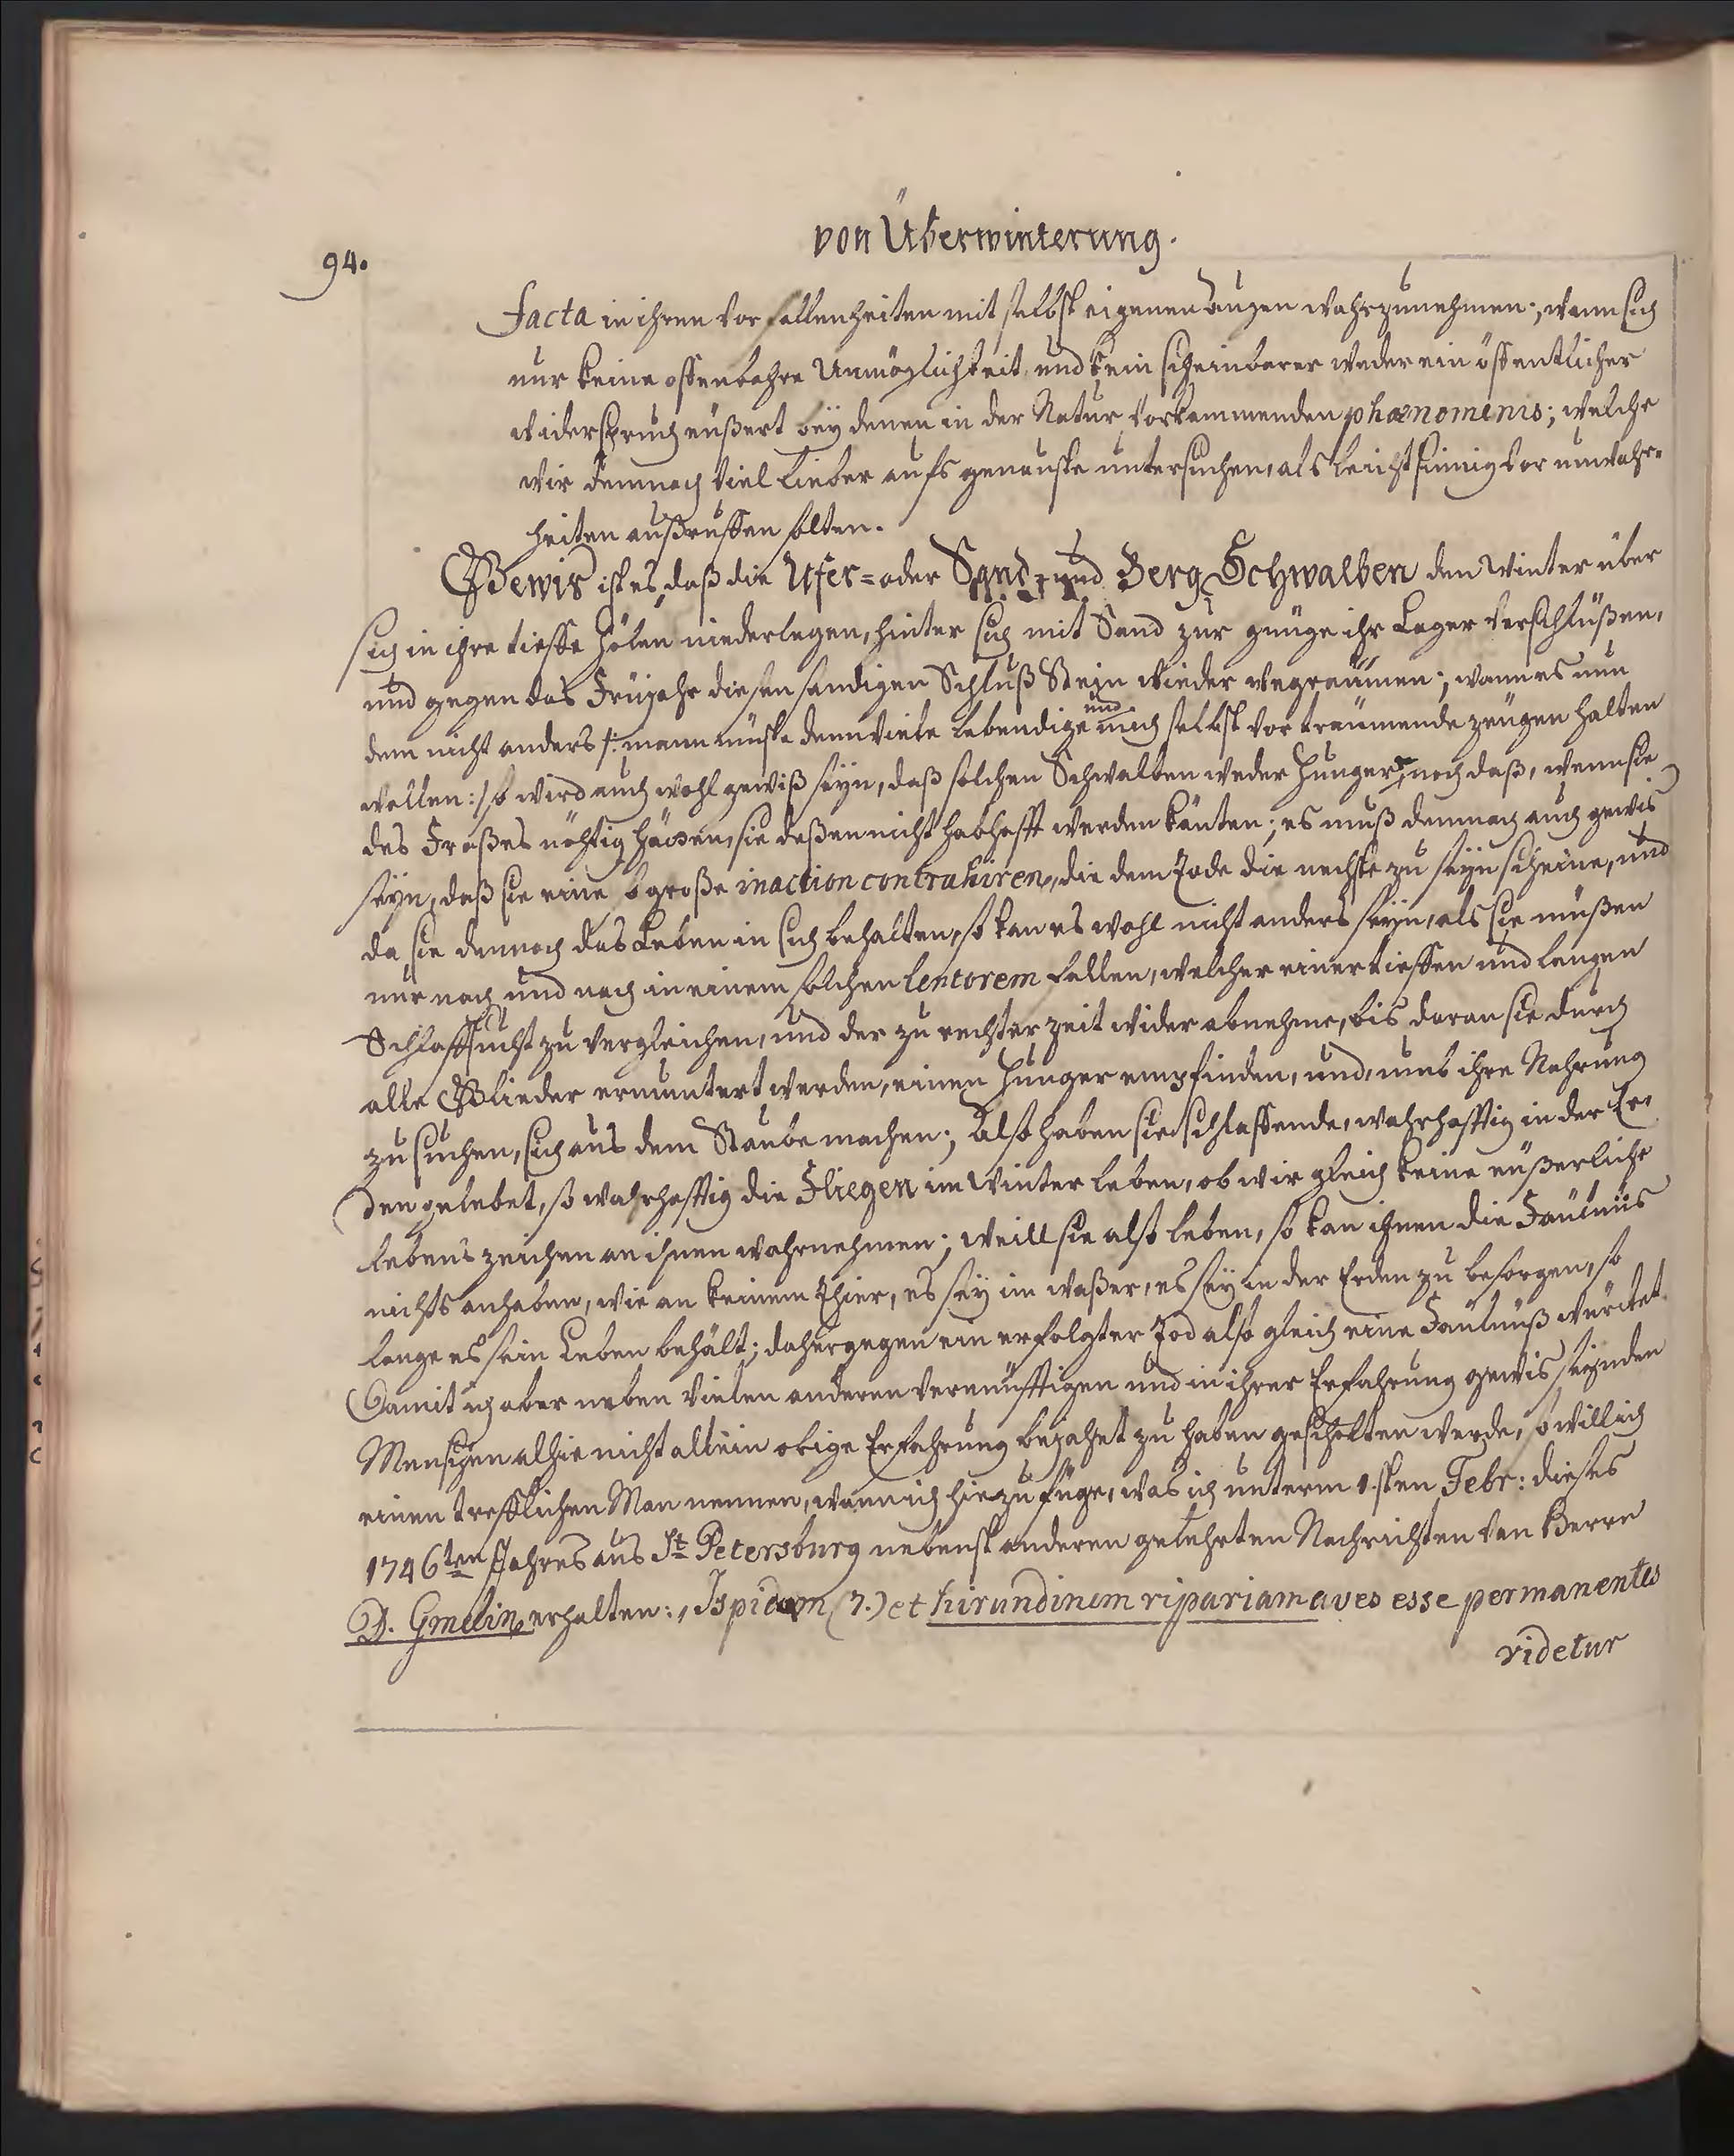 von Überwinterung.
94.
facta in ihren Vorfallenheiten mit selbst eigenen augen wahrzunehmen; wann sich
nur keine offenbahre Unmöglichkeit und kein scheinbarer weder ein öffentlicher
widerspruch eußert bey denen in der Natur vorkammenden phænomenis; welche
wir demnach viel lieber aufs genauste untersuchen, als leichtsinnig vor unwahr-
heiten außruffen solten.
Gewis ist es, daß die Ufer= oder Sand= und Berg Schwalben den Winter über
sich in ihre tieffe Hölen niederlegen, hinter sich mit Sand zur gnüge ihr Lager verschlüßen,
und gegen das Früjahr diesen sandigen Schluß Stein wieder wegräumen; wann es nun
dem nicht anders /: mann müste denn viele lebendige und mich selbst vor träumende zeugen halten
wollen:/ so wird auch wohl gewiß seyn, daß solchen Schwalben weder Hungert, noch daß, wenn sie
des Fraßes nöhtig hätten, sie deßen nicht habhafft werden könten; es muß demnach auch gewis
seyn, daß sie eine so große inaction contrahiren, die dem Tode die nechste zu seyn scheine, und
da sie dennoch das Leben in sich behalten, so kan es wohl nicht anders seyn, als sie müßen
nur nach und nach in einem solchen lentorem fallen, welcher einer tieffen und langen
Schlaffsucht zu vergleichen, und der zu rechter zeit wider abnehme, bis daran sie durch
alle Glieder ermuntert werden, einen Hunger empfinden, und, umb ihre Nahrung
zu suchen, sich aus dem Staube machen; Also haben sie schlaffende, wahrhafftig in der Er-
den gelebet, so wahrhafftig die Fliegen im Winter leben, ob wir gleich keine eußerliche
lebens zeichen an ihnen wahrnehmen; weill sie also leben, so kan ihnen die Fäulnüs
nichts anhaben, wie an keinem Thier, es sey im waßer, es sey in der Erden zu besorgen, so
lange es sein Leben behält; dahergegen ein erfolgter Tod also gleich eine Fäulnüß würcket.
Damit ich aber neben vielen anderen vernünfftigen und in ihrer Erfahrung gewis seynden
Menschen alhie nicht allein obige Erfahrung bejahet zu haben gescholten werde, so will ich
einen trefflichen Man nennen, wann ich hiezu füge, was ich unterm 1.sten Febr: dieses
1746ten Jahres aus St Petersburg nebenst anderen gelehrten Nachrichten van Herrn
D. Gmelin erhalten: „ Ispidam (7.) et hirundinem ripariam aves esse permanentes
videtur